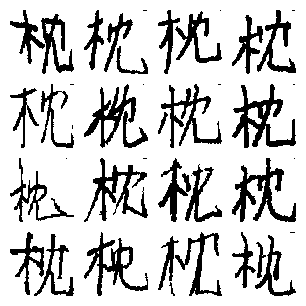 枕枕枕枕
枕枕枕枕
枕枕枕枕
枕枕枕枕